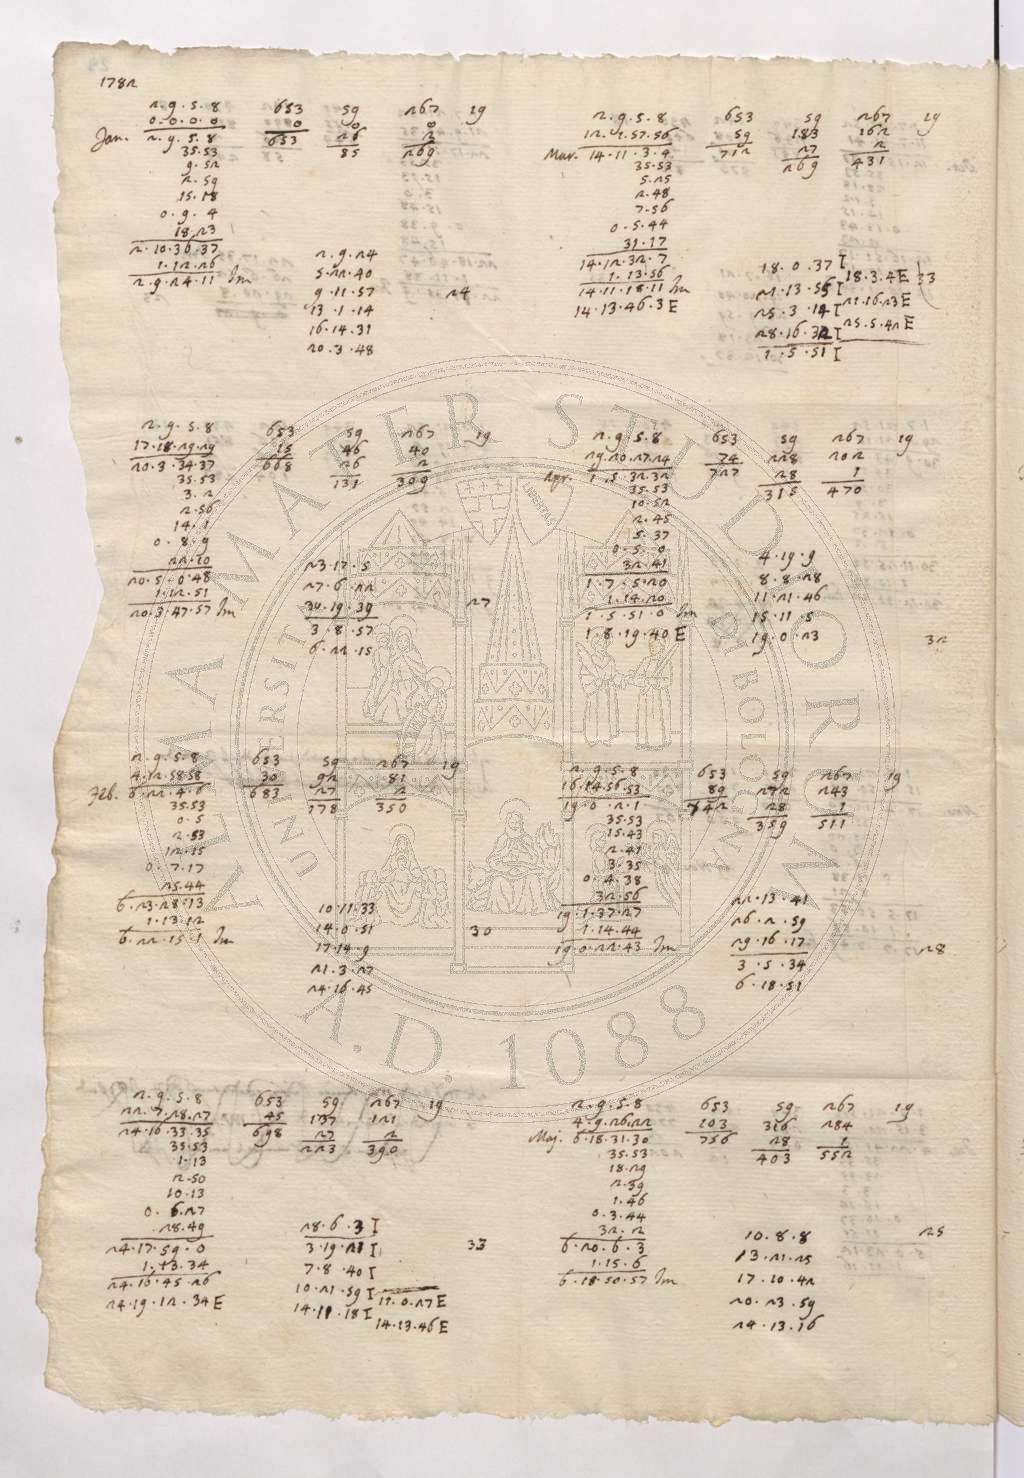 1782
2.9.5.8 653 59 267 19
0.0.0.0 0 0 0
Jan. 2.9.5.8 653 26 2
35.53 85 269
9.52
2.59
15.18
0.9.4
18.23
2.10.36.37
1.12.26 2.9.24
2.9.24.11 Im 5.22.40
9.11.57 24
13.1.14
16.14.31
20.3.48
2.9.5.8 653 59 267 19
17.18.29.29 15 46 40
20.3.34.37 668 26 2
35.53 131 309
3.2
2.56
14.1
0.8.9
22.10 23.17.5
20.5.0.48 27.6.22
1.12.51 30.19.39 27
20.3.47.57 Im 3.8.57
6.22.15
2.9.5.8 653 59 267 19
4.12.58.58 30 92 81
Feb. 6.22.4.6 683 27 2
35.53 178 350
0.5
2.53
12.15
0.7.17
25.44
6.23.28.13 10.11.33
1.13.12 14.0.51 30
6.22.15.1 Im 17.14.9
21.3.27
24.16.45
2.9.5.8 653 59 267 19
22.7.28.27 45 137 121
24.16.33.35 698 27 2
35.53 223 390
1.13
2.50
10.13
0.6.27
28.49 28.6.3 I
24.17.59.0 3.19.21 I 33
1.13.34 7.8.40 I
24.16.45.26 10.21.59 I 11.0.27 E
24.19.12.34 E 14.11.18 I 14.13.46 E
2.9.5.8 653 59 267 19
12.1.57.56 59 183 162
Mar. 14.11.3.4 712 27 2
35.53 269 431
5.25
2.48
7.56
0.5.44
31.17
14.12.32.7 18.0.37 I 18.3.4 E 33
1.13.56 21.13.55 I 21.16.23 E
14.11.18.11 Im 25.3.14 I 25.5.42 E
14.13.46.3 E 28.16.32 I
1.5.51 I
2.9.5.8 653 59 267 19
29.20.27.24 74 228 202
Apr. 1.5.32.32 727 28 1
35.53 315 470
10.52
2.45
5.37
0.5.0 4.19.9
32.41 8.8.28
1.7.5.20 11.21.46
1.14.20 15.11.5
1.5.51.0 Im 19.0.23 32
1.8.19.40 E
2.9.5.8 653 59 267 19
16.14.56.53 89 272 243
19.0.2.1 742 28 1
35.53 359 511
15.43
2.41
3.35
0.4.38
32.56 22.13.41
19.1.37.27 26.2.59
1.14.44 29.16.17 28
19.0.22.43 Im 3.5.34
6.18.51
2.9.5.8 653 59 267 19
4.9.26.22 103 316 284
Maj. 6.18.31.30 756 28 1
35.53 403 552
18.29
2.39
1.46
0.3.44
32.2 10.8.8 25
6.20.6.3 13.21.25
1.15.6 17.10.42
6.18.50.57 Im 20.23.59
24.13.16
ALMA MATER STUDIORUM
UNIVERSITÀ DI BOLOGNA
LIBERTAS
A.D. 1088